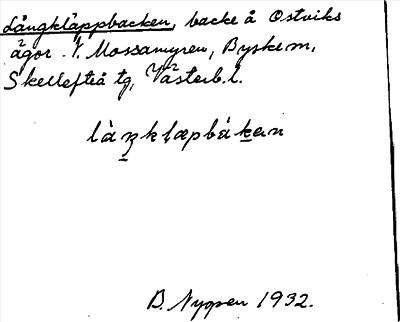 Långkläppbacken, backe å Ostviks
ägor V. Mossamyren, Byske sn,
Skellefteå tg, Västerb. l.
làŋklæpbákən
B. Nygren 1932.